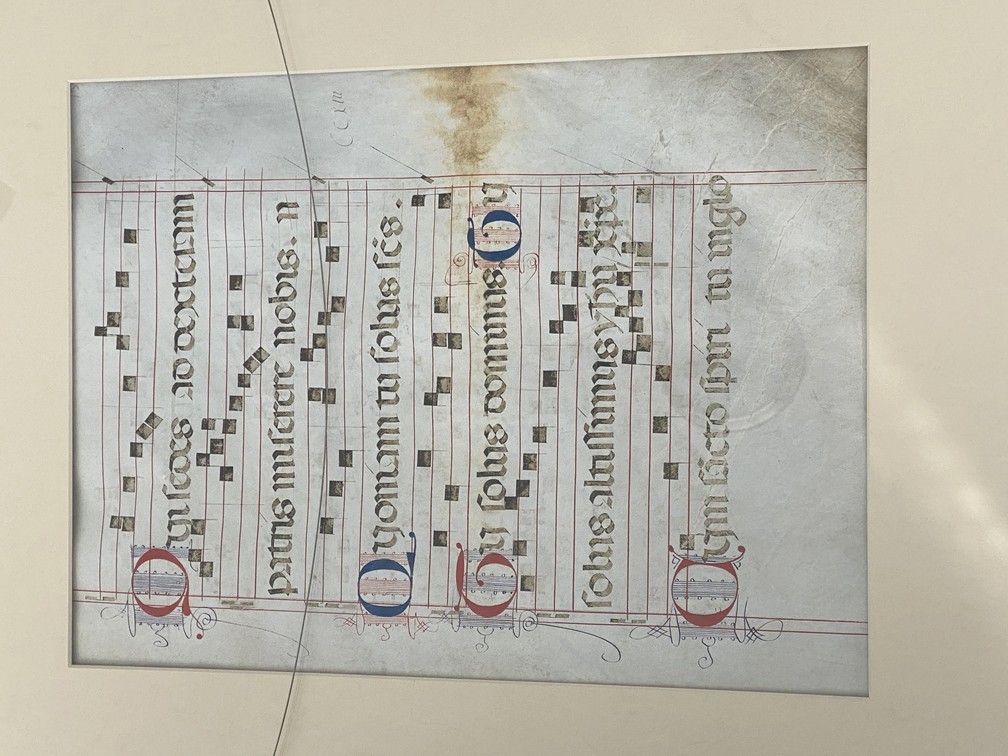 CCxiii
Qui sedes ad dexteram
patris miserere nobis.
Quoniam tu solus scs.
Tu solus dominus Tu
solus altissimus yhu xpe.
Cum sācto spiri tu in glo